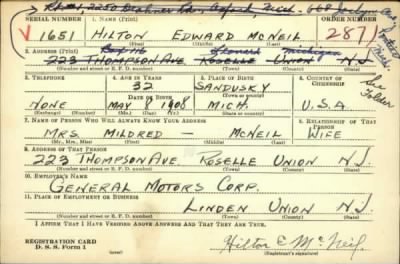 Rt #1, 2250 Brahner Rd., Oxford, Mich. 668 Joslyn Ave.
SERIAL NUMBER 1. NAME (Print) ORDER NUMBER
V 1651 HILTON EDWARD MCNEIL 2871
(First) (Middle) (Last)
2. ADDRESS (Print) Leonard Michigan
223 THOMPSON AVE ROSELLE UNION N.J.
(Number and street or R. F. D. number) (Town) (County) (State)
3. TELEPHONE 4. AGE IN YEARS 5. PLACE OF BIRTH 6. COUNTRY OF CITIZENSHIP
32 SANDUSKY See Folder
DATE OF BIRTH (Town or county)
NONE MAY 8 1908 MICH. U.S.A.
(Exchange) (Number) (Mo.) (Day) (Yr.) (State or country)
7. NAME OF PERSON WHO WILL ALWAYS KNOW YOUR ADDRESS 8. RELATIONSHIP OF THAT PERSON
MRS. MILDRED — MCNEIL WIFE
(Mr., Mrs., Miss) (First) (Middle) (Last)
9. ADDRESS OF THAT PERSON
223 THOMPSON AVE. ROSELLE UNION N.J.
(Number and street or R. F. D. number) (Town) (County) (State)
10. EMPLOYER'S NAME
GENERAL MOTORS CORP.
11. PLACE OF EMPLOYMENT OR BUSINESS
LINDEN UNION N.J.
(Number and street or R. F. D. number) (Town) (County) (State)
I AFFIRM THAT I HAVE VERIFIED ABOVE ANSWERS AND THAT THEY ARE TRUE.
REGISTRATION CARD
D. S. S. Form 1
Hilton E McNeil
(Registrant's signature)